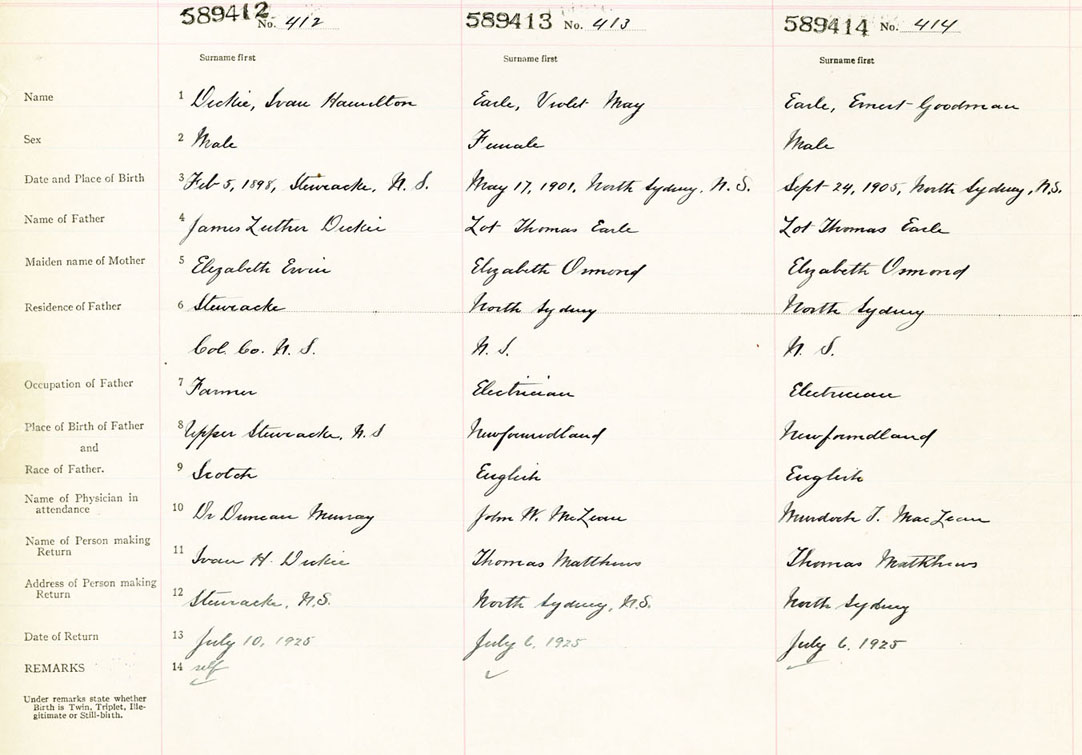 589412 No. 412 589413 No. 413 589414 No. 414
Surname first Surname first Surname first
Name 1 Dickie, Ivan Hamilton Earle, Violet May Earle, Ernest Goodman
Sex 2 Male Female Male
Date and Place of Birth 3 Feb 5, 1898, Stewiacke, N. S. May 17, 1901, North Sydney, N. S. Sept 24, 1905, North Sydney, N.S.
Name of Father 4 James Luther Dickie Lot Thomas Earle Lot Thomas Earle
Maiden name of Mother 5 Elizabeth Ervin Elizabeth Osmond Elizabeth Osmond
Residence of Father 6 Stewiacke North Sydney North Sydney
Col. Co. N. S. N. S. N. S.
Occupation of Father 7 Farmer Electrician Electrician
Place of Birth of Father 8 Upper Stewiacke, N. S Newfoundland Newfoundland
and
Race of Father. 9 Scotch English English
Name of Physician in
attendance 10 Dr Duncan Murray John W. McLean Murdoch T. MacLean
Name of Person making
Return 11 Ivan H. Dickie Thomas Matthews Thomas Matthews
Address of Person making
Return 12 Stewiacke, N.S. North Sydney, N.S. North Sydney
Date of Return 13 July 10, 1925 July 6, 1925 July 6, 1925
REMARKS 14 self
Under remarks state whether
Birth is Twin, Triplet, Ille-
gitimate or Still-birth.